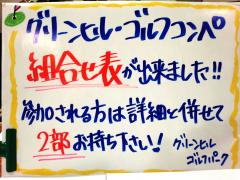 グリーンヒル・ゴルフコンペ
組合せ表が出来ました!!
参加される方は詳細と併せて
2部お持ち下さい!
グリーンヒル
ゴルフパーク